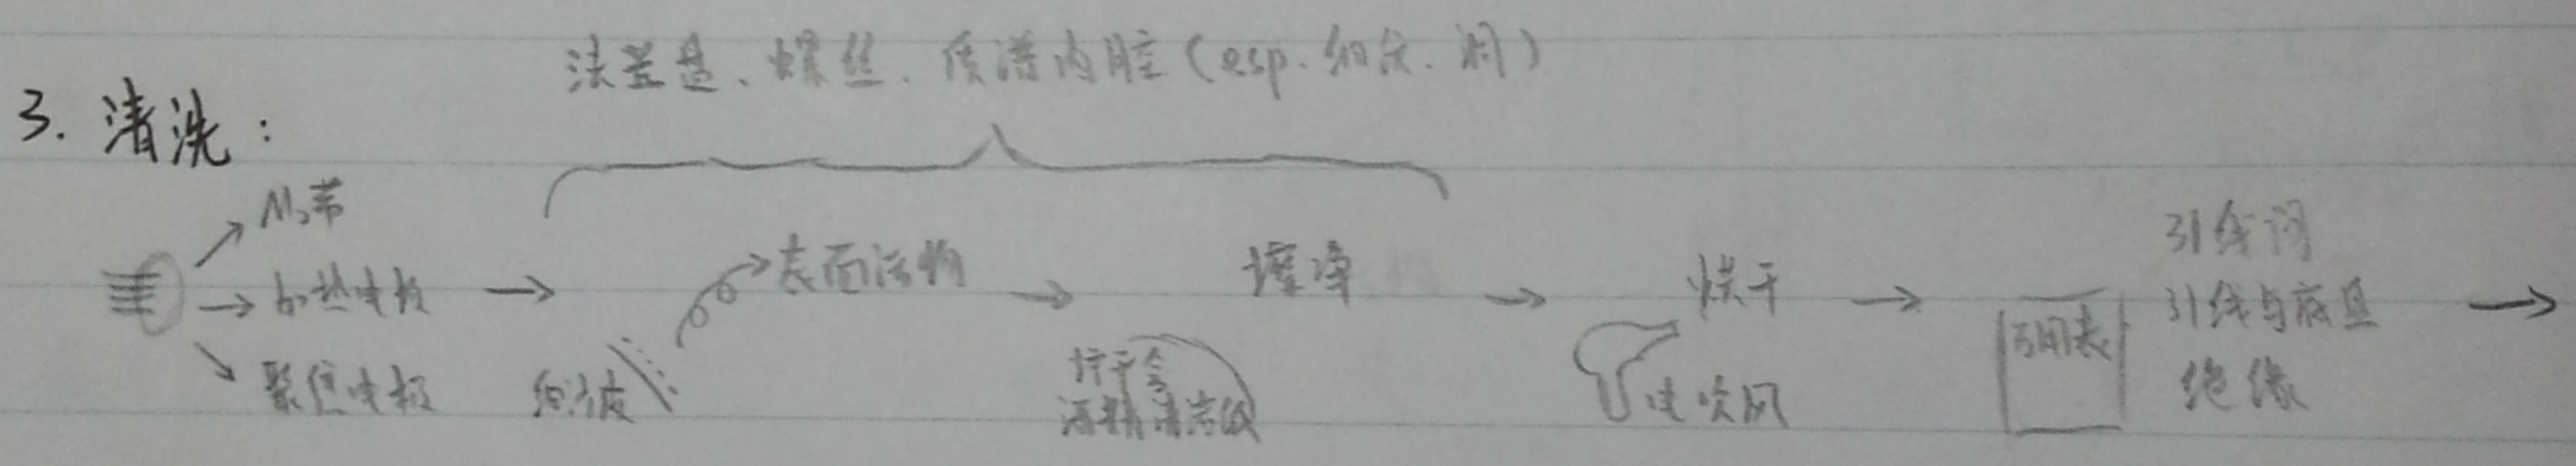 法兰盘、螺丝、质谱内腔（esp. 细缝、洞）
3. 清洗：
Ni带
加热电极
聚焦电极
细砂皮
表面污物
擦净
酒精 清洁纸
烘干
电吹风
万用表
引线间
引线与底盘
绝缘